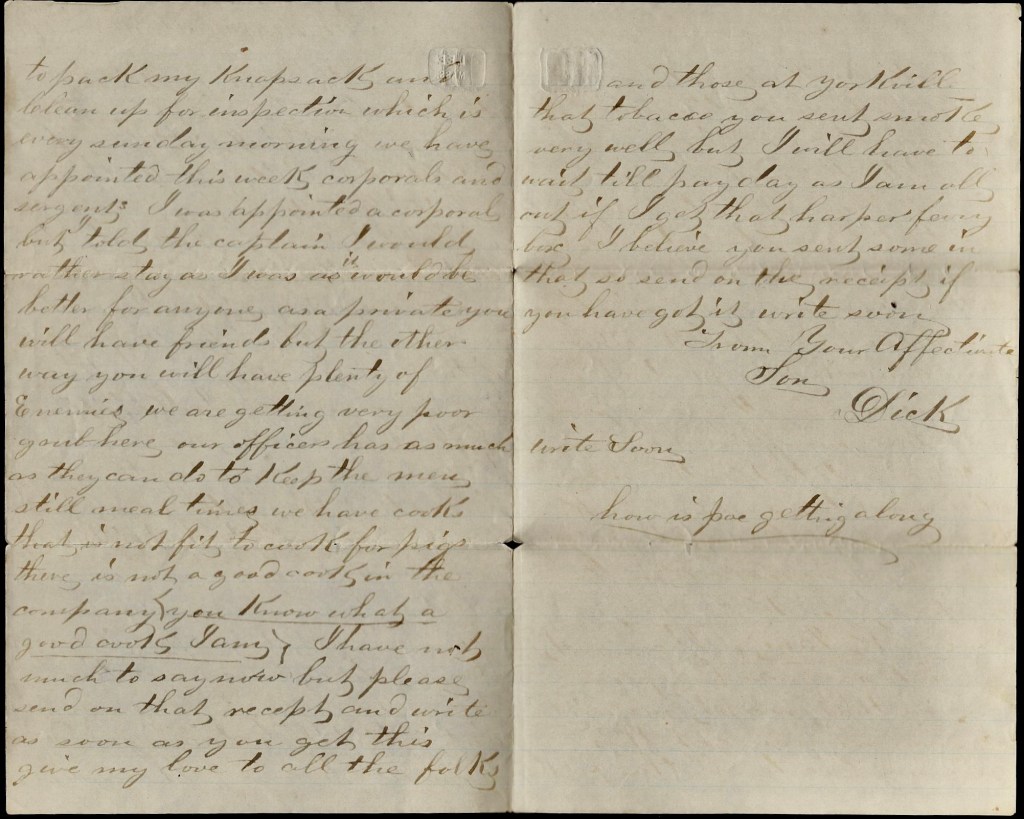 to pack my Knapsack and
clean up for inspection which is
every sunday morning we have
appointed this week corporals and
sergents I was appointed a corporal
but told the captain I would
rather stay as I was as it would be
better for anyone as a private you
will have friends but the other
way you will have plenty of
Enemies we are getting very poor
grub here our officers has as much
as they can do to Keep the men
still meal times we have cooks
that is not fit to cook for pigs
there is not a good cook in the
company (you Know what a
good cook I am) I have not
much to say now but please
send on that recept and write
as soon as you get this
give my love to all the folks
and those at yorkvill
that tobacco you sent smoke
very well but I will have to
wait till pay day as I am all
out if I get that harper ferry
box I believe you sent some in
that so send on the receipt if
you have got it write soon
From Your Affectinate
Son
Dick
write Soon
how is poe getting along